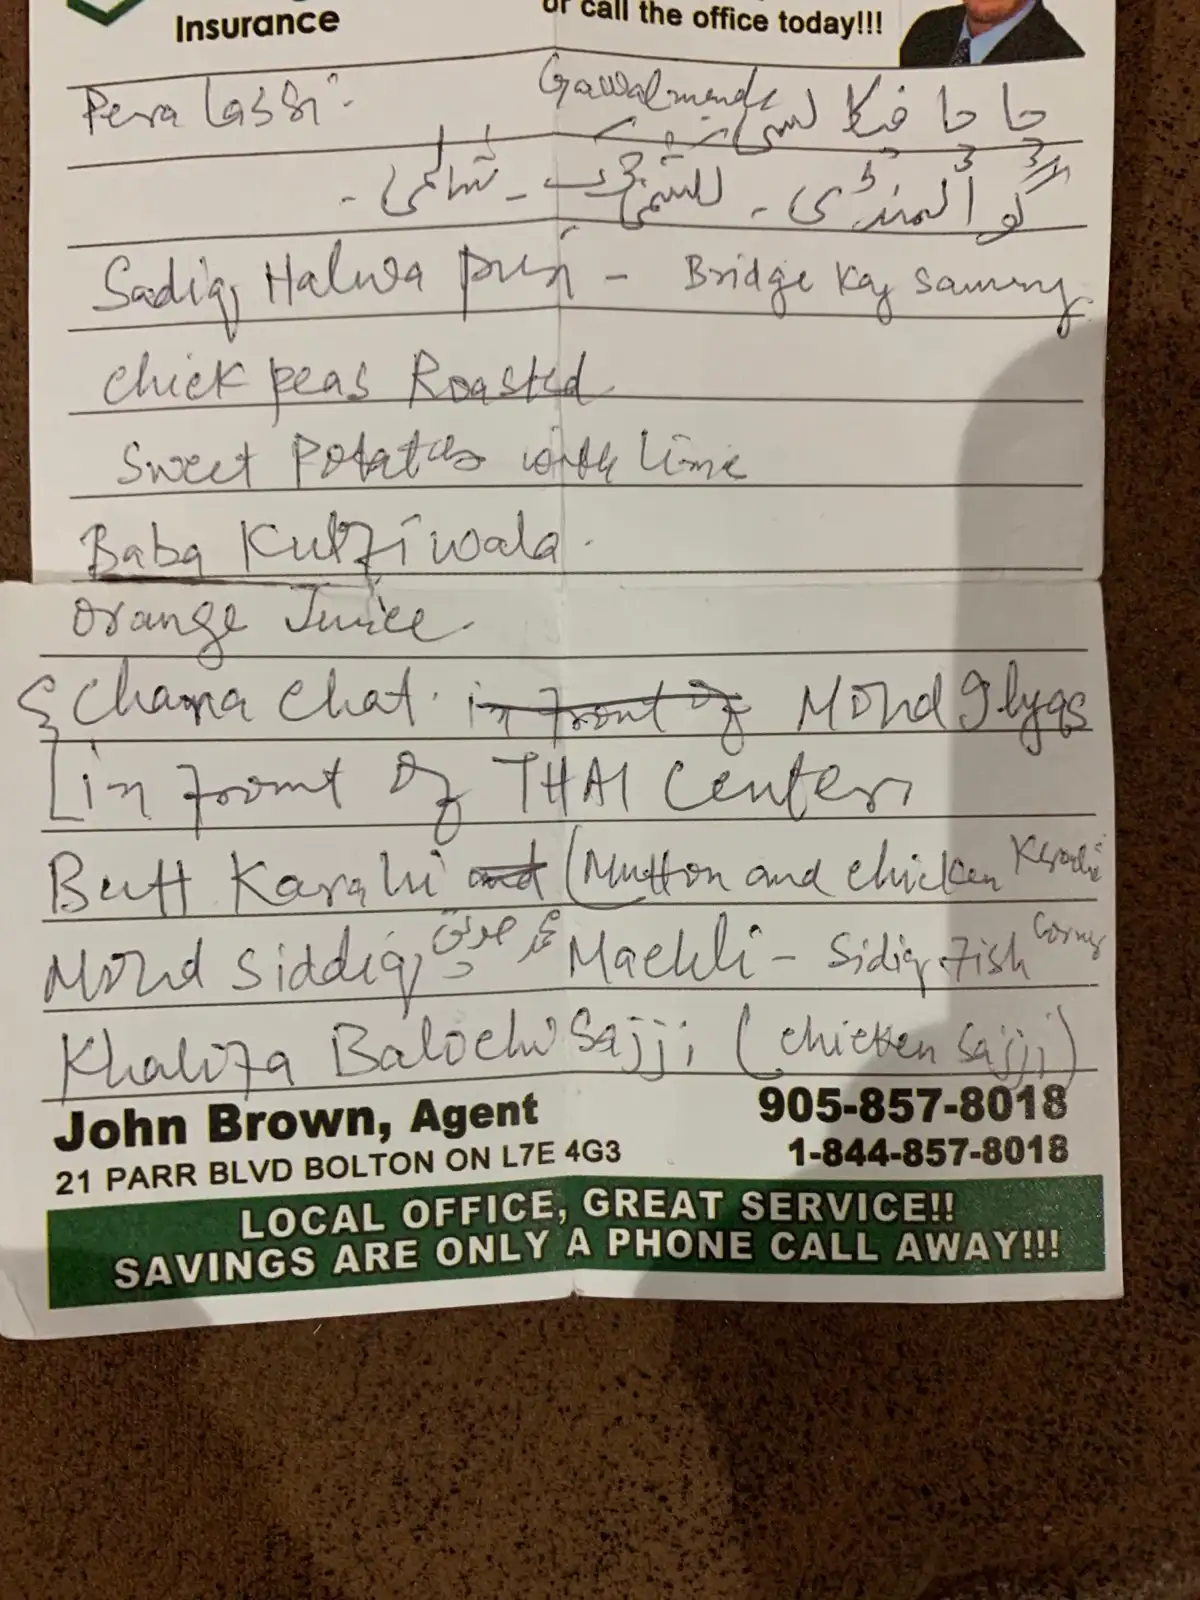 Insurance
or call the office today!!!
Pera Lassi. Gawalmandi چا چا فیکا لسی
گوالمنڈی - لکشمی چوک - شالمی -
Sadiq Halwa puri - Bridge Kay Samny
chick peas Roasted
Sweet Potatos with lime
Baba Kulfiwala.
Orange Juice.
Chana Chat. in front of Mohd Ilyas
in front of THAI Center
Butt Karahi and (Mutton and chicken Karahi
Mohd Siddiq محمد صدیق Machli - Sidiq Fish Corner
Khalifa Balochi Sajji (chicken Sajji)
John Brown, Agent 905-857-8018
21 PARR BLVD BOLTON ON L7E 4G3 1-844-857-8018
LOCAL OFFICE, GREAT SERVICE!!
SAVINGS ARE ONLY A PHONE CALL AWAY!!!